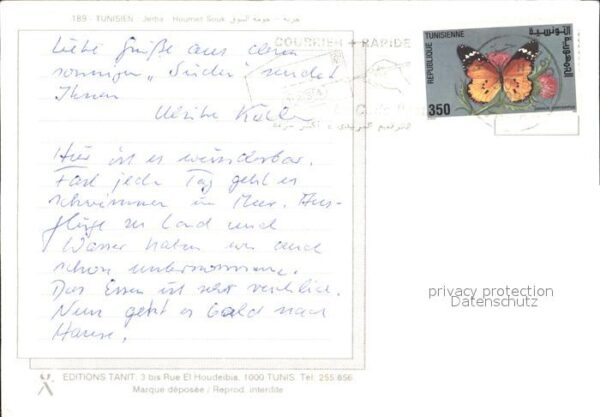 189 - TUNISIEN Jerba Houmet Souk جربة - حومة السوق
Liebe Grüße aus dem
sonnigen „Süden" sendet
Ihnen
Ulrike
Hier ist es wunderbar.
Fast jeden Tag geht es
schwimmen im Meer. Aus-
flüge zu Land und
Wasser haben wir auch
schon unternommen.
Das Essen ist sehr reichlich.
Nun geht es bald nach
Hause.
COURRIER + RAPIDE
REPUBLIQUE TUNISIENNE
الجمهورية التونسية
350
privacy protection
Datenschutz
EDITIONS TANIT: 3 bis Rue El Houdeibia, 1000 TUNIS Tel. 255.656.
Marque déposée / Reprod. interdite